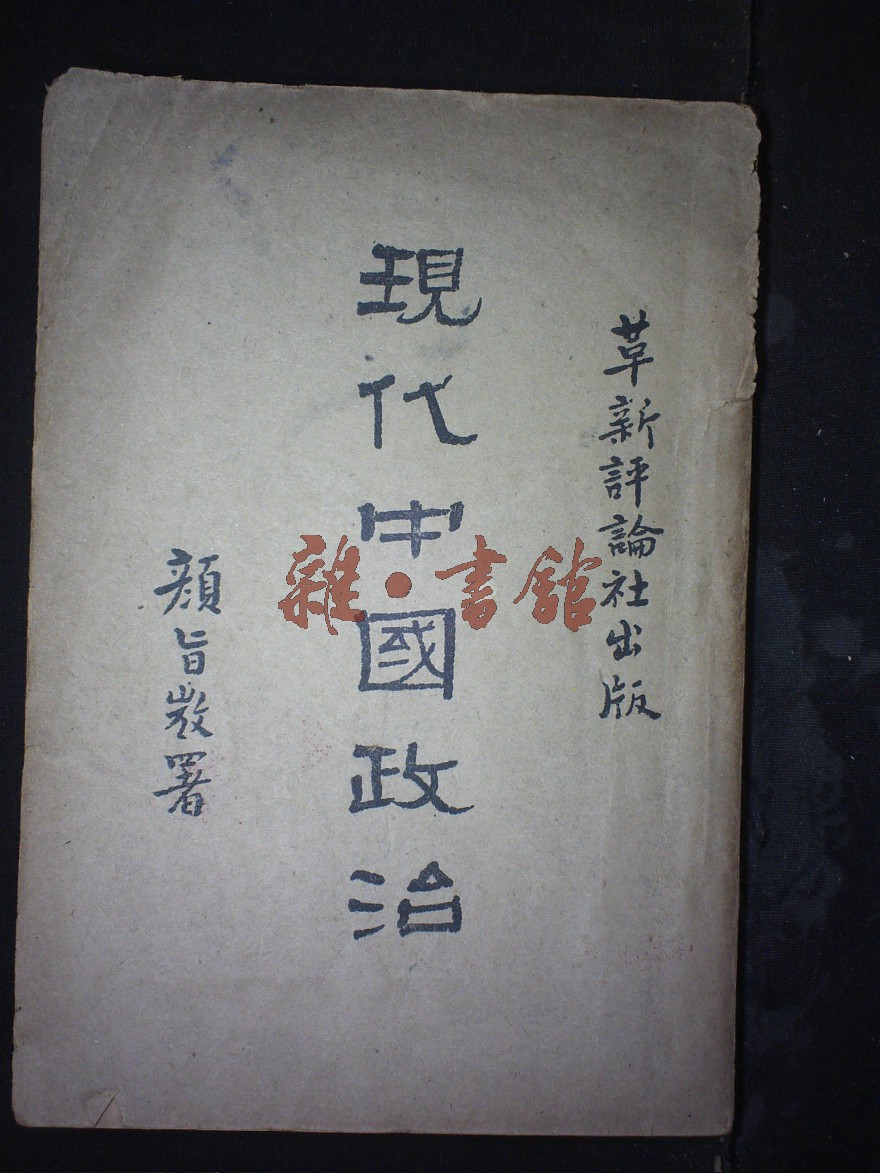 革新評論社出版
現代中國政治
顏旨微署
雜·書館